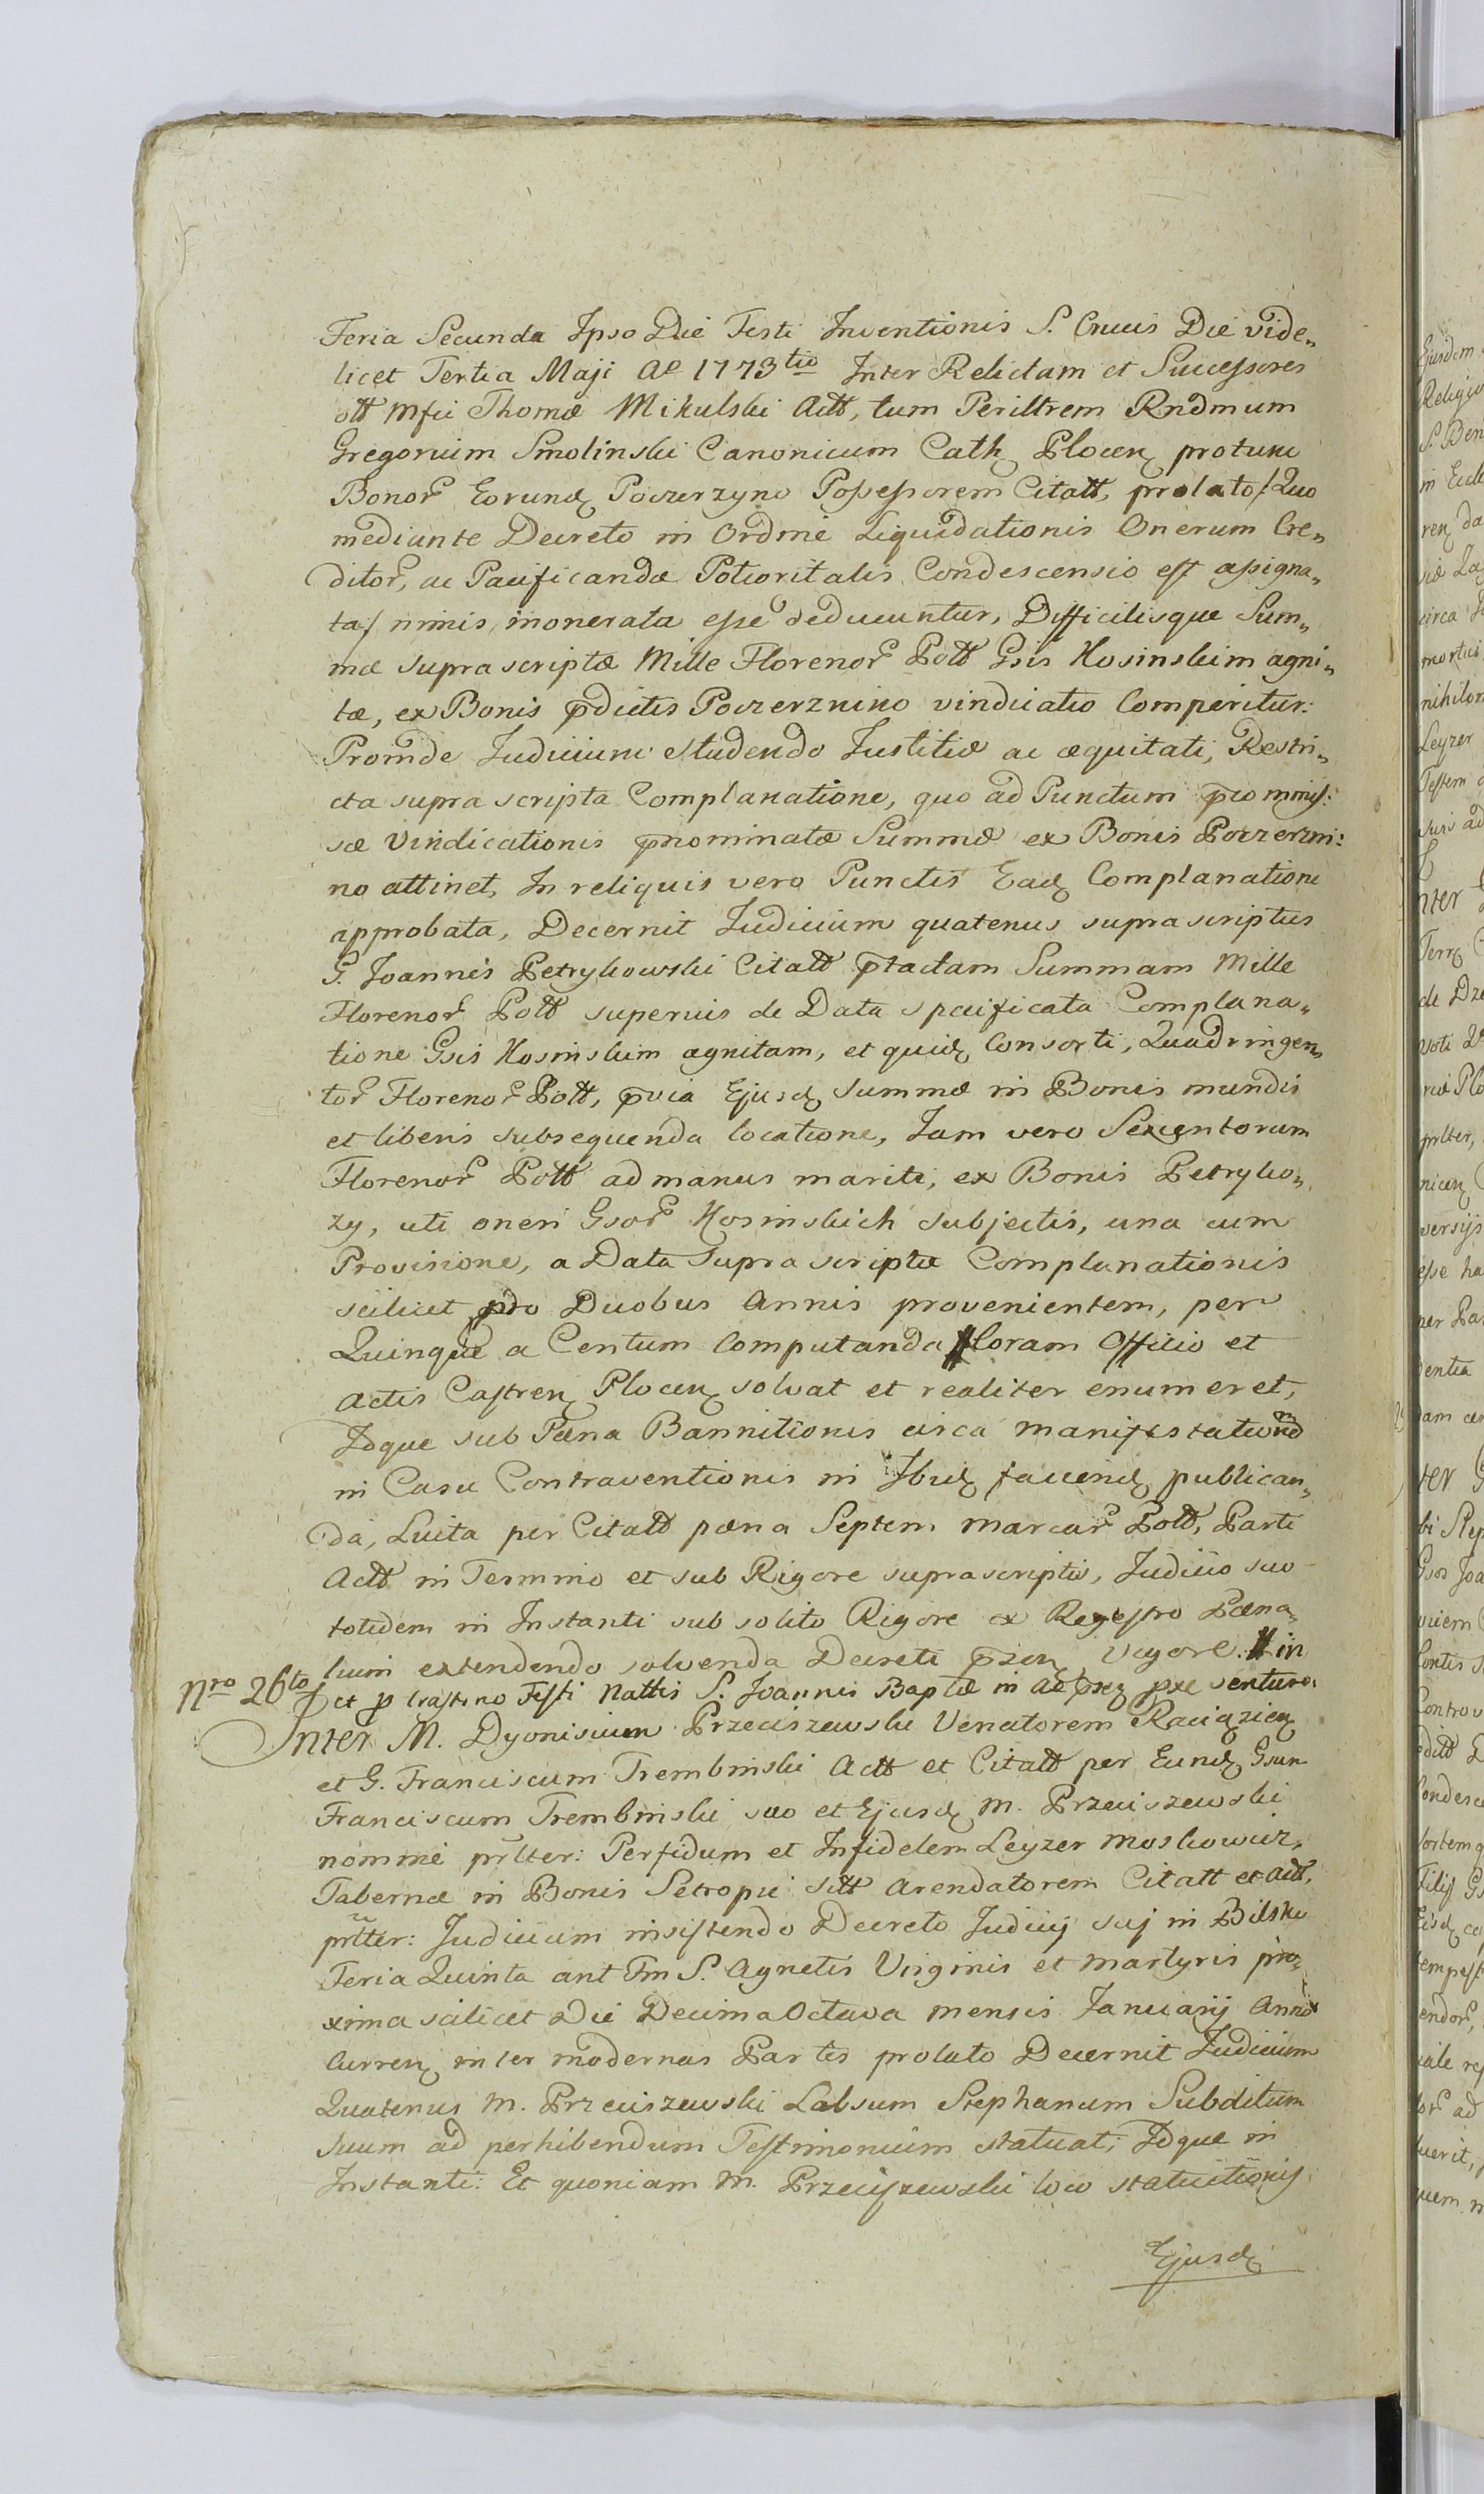 Feria Secunda Ipso Die Festi Inventionis S. Crucis Die vide„
licet Tertia Maji Ao 1773tio Inter Relictam et Successores
ott Mfci Thomæ Mikulski Actt, tum Perilltrem Rndmum
Gregorium Smolinski Canonicum Cath Plocen protunc
Bonor Eorund Poczerzyno Possessorem Citatt, prolato /Quo
mediante Decreto in Ordine Liquidationis Onerum Cre„
ditor, ac Pacificandæ Potioritatis Condescensio est assigna„
ta/ nimis inonerata esse deducuntur, Difficilisque Sum„
mæ supra scriptæ Mille Florenor Pott Gsis Kosinskim agni„
tæ, ex Bonis pdictis Poczerznino vindicatio Comperitur:
Proinde Judicium Studendo Justitiæ ac æquitati, Restri„
cta supra scripta Complanatione, quo ad Punctum
sæ Vindicationis pnominatæ Summæ ex Bonis Poczerzni:
no attinet, In reliquis vero Punctis Ead Complanatione
approbata, Decernit Judicium quatenus suprascriptus
G. Joannes Petrykowski Citatt ptactam Summam Mille
Florenor Pott superius de Data specificata Complana„
tione Gsis Kosinskim agnitam, et quid Consorti, Quadringen„
tor Florenor Pott, pvia Ejusd Summæ in Bonis mundis
et liberis subsequenda locatione, Jam vero Sexcentorum
Florenor Pott ad manus mariti, ex Bonis Petryko„
zy, uti oneri Gsor Kosinskich subjectis, una cum
Provisione, a Data supra scriptæ Complanationis
scilicet pro Duobus Annis provenientem, per
Quinque a Centum Computanda # Coram Officio et
Actis Castren Plocen solvat et realiter enumeret,
Idque sub Pæna Bannitionis circa manifestationem
in Casu Contraventionis in Ibid faciend publican„
da, Luita per Citatt pæna Septem marcar Pott, Parti
Actt in Termino et sub Rigore suprascriptis, Judicio suo
totidem in Instanti sub solito Rigore ex Regestro Pæna„
lium extendendo solvenda Decreti pzen vigore. # in
et p Crastino Festi Nattis S. Joannis Baptæ in venturo.
Nro 26to
Inter M. Dyonisium Przeciszewski Venatorem Raciązien
et G. Franciscum Trembinski Actt et Citatt per Eund Gsum
Franciscum Trembinski suo et Ejusd M. Przeciszewski
nomine prlter: Perfidum et Infidelem Leyzer Moskowicz,
Tabernæ in Bonis Setropie sitt Arendatorem Citatt et Actt,
prlter: Judicium insistendo Decreto Judicij suj in Bilsko
Feria Quinta ant Fm S. Agnetis Virginis et Martyris pro„
xima scilicet Die Decima Octava mensis Januarij Anni
Curren inter modernas Partes prolato Decernit Judicium
Quatenus M. Przeciszewski Labsum Stephanum Subditum
suum ad perhibendum Testimonium statuat, Idque in
Instanti: Et quoniam M. Przeciszewski loco statuitionis
Ejusd